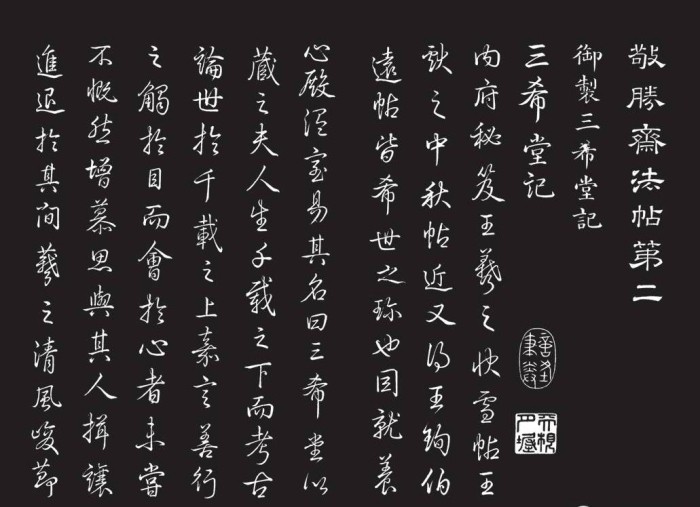 敬勝齋法帖第二
御製三希堂記
三希堂記
內府秘笈王羲之快雪帖王
獻之中秋帖近又得王珣伯
遠帖皆希世之珍也因就養
心殿溫室易其名曰三希堂以
藏之夫人生千載之下而考古
論世於千載之上嘉言善行
之觸於目而會於心者未嘗
不慨然增慕思與其人揖讓
進退於其間羲之清風峻節